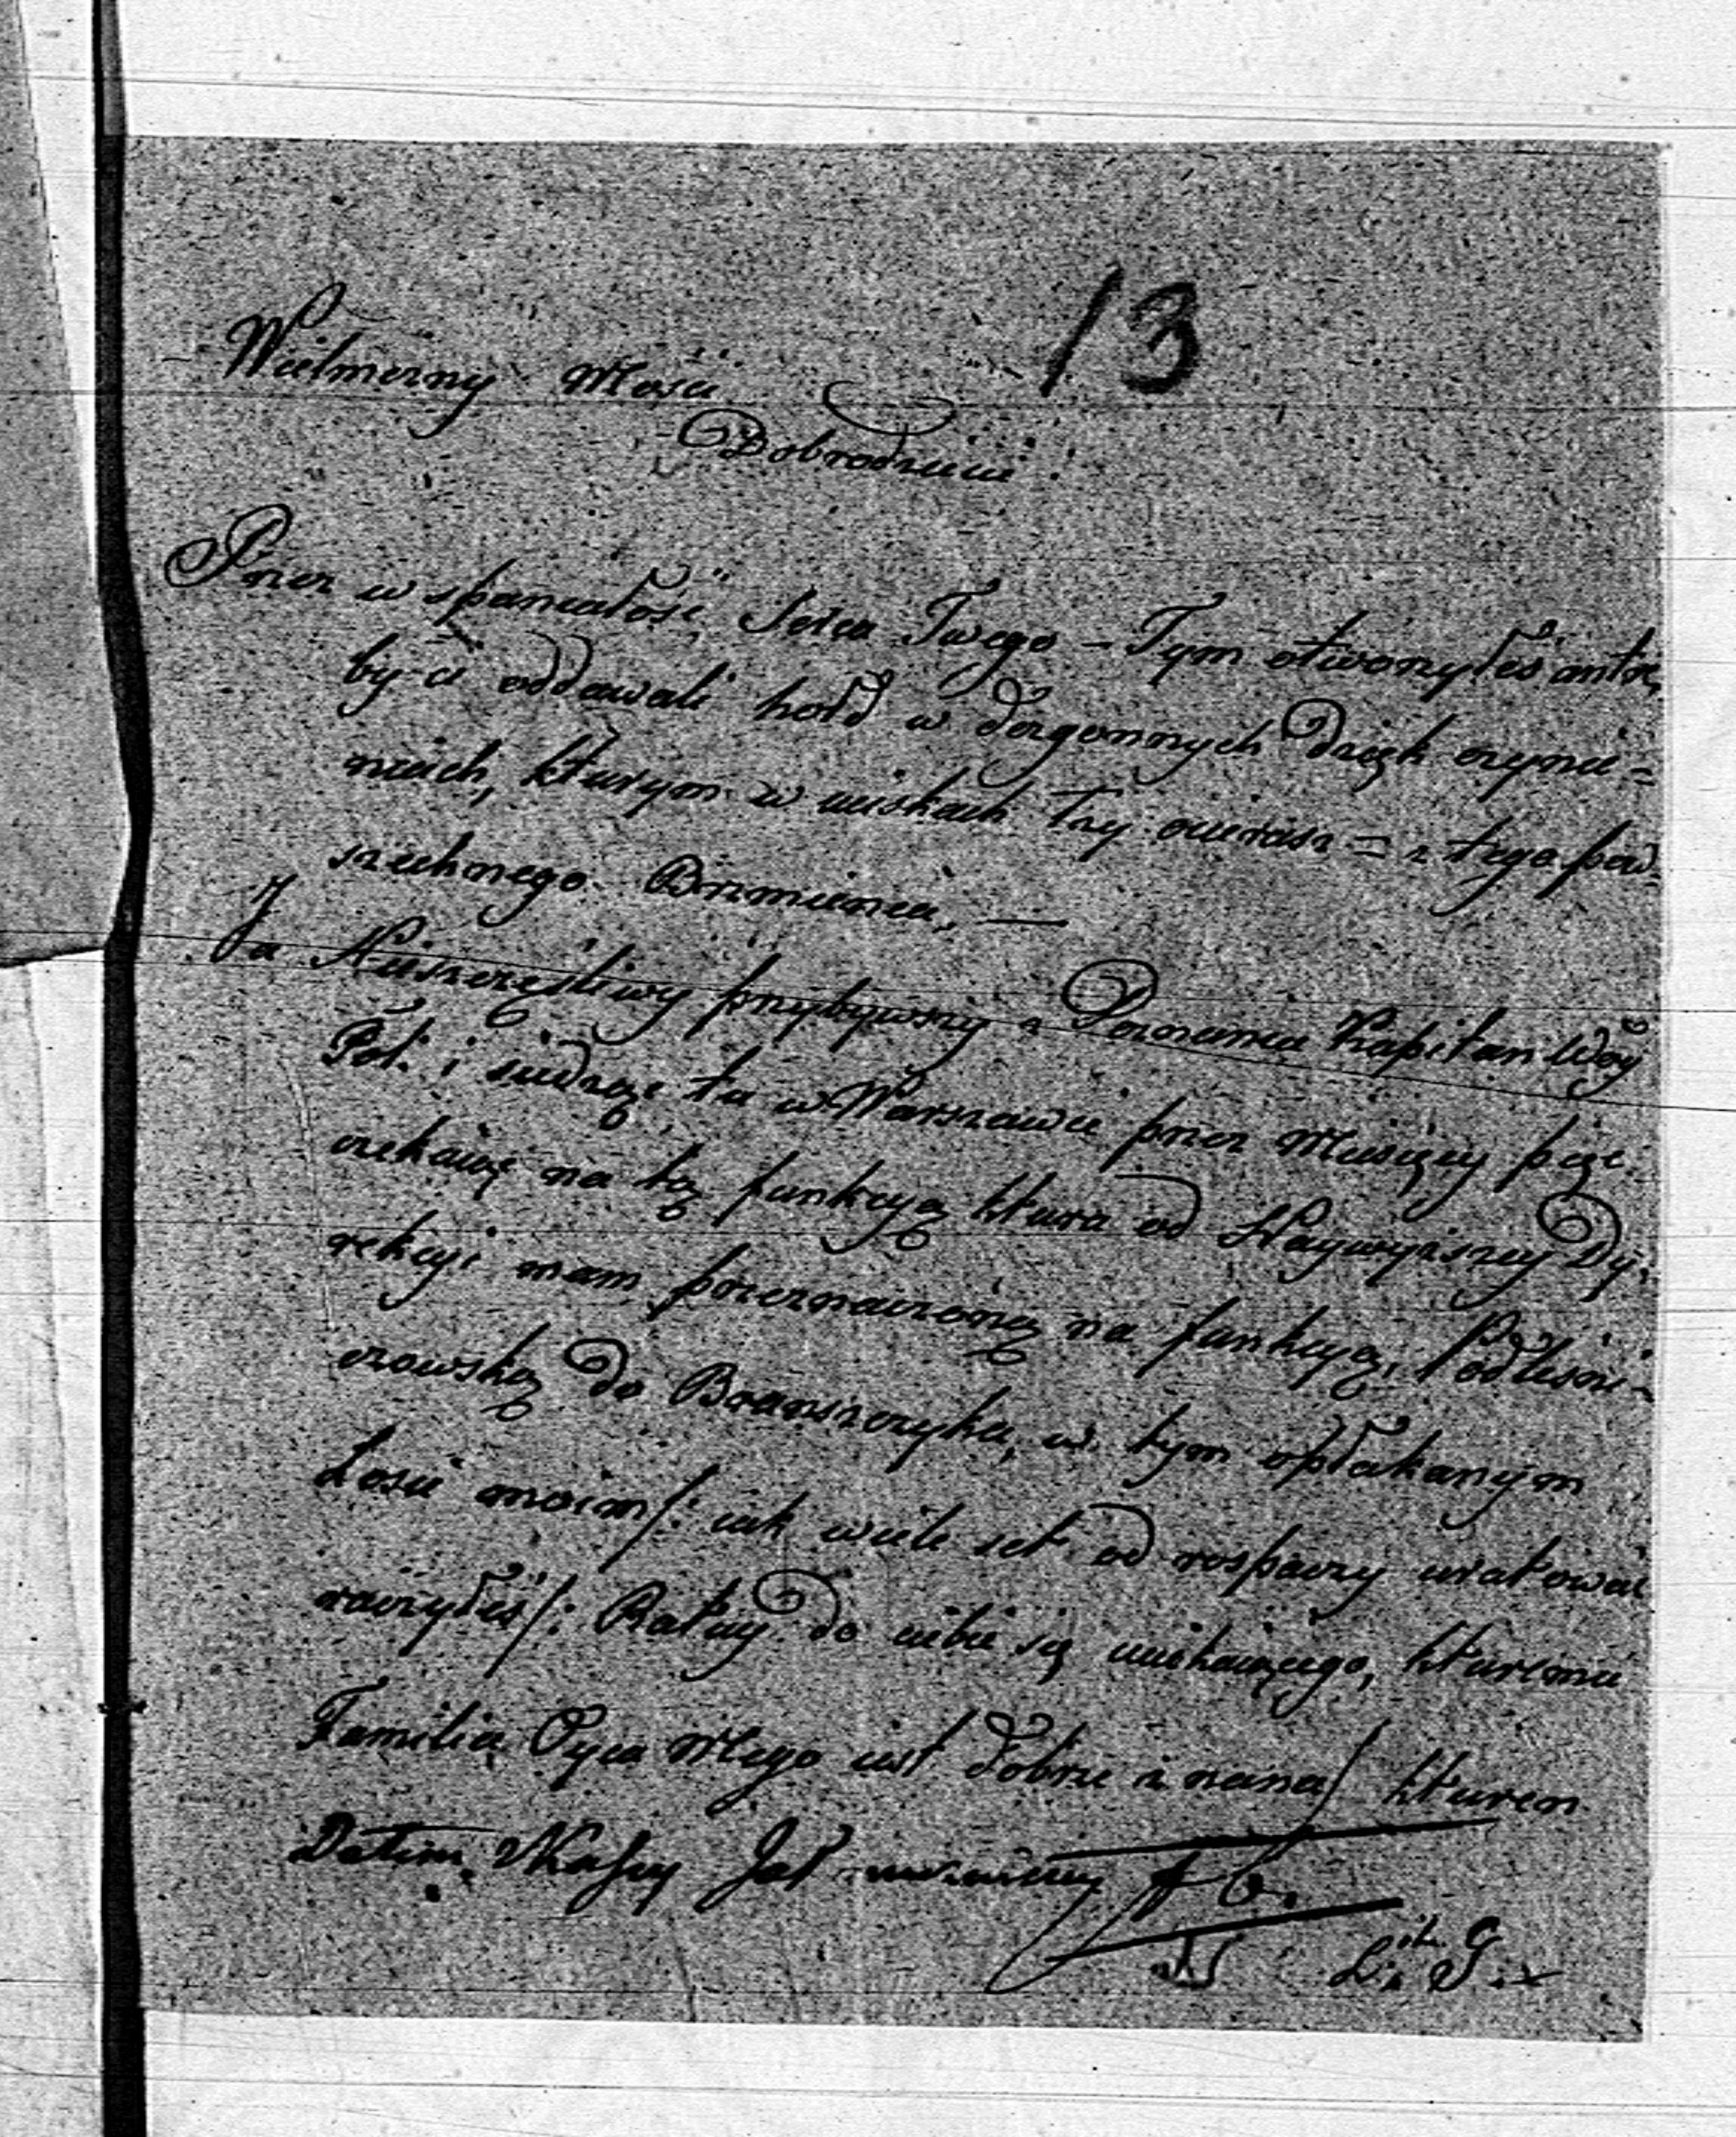 13
Wielmożny Mości
Dobrodzieiu!
Przez wspaniałość Serca Twego – Tym otworzyłeś
by ci oddawali hołd w dozgonnych Dzięk czynie=
niach, kturym w uciskach łzy ocierasz = z tego pow=
szechnego Brzmienia, —
Ja Nieszczęśliwy przybywszy z Poznania Kapitan Woy
Pol: i siedzę tu w Warszawie przez Miesięcy pięć
czekaiąc na tę funkcyą ktura od Naywyższey Dy=
rekcyi mam przeznaczoną na funkcyą, Podleśni=
czowską do Brańszczyka, w tym opłakanym
Losie moim /: iak wiele set od rospaczy uratować
raczyłeś /: Ratuy do ciebie się uciekaiącego, kturemu
Familia Oyca Mego iest dobrze znana / kturen